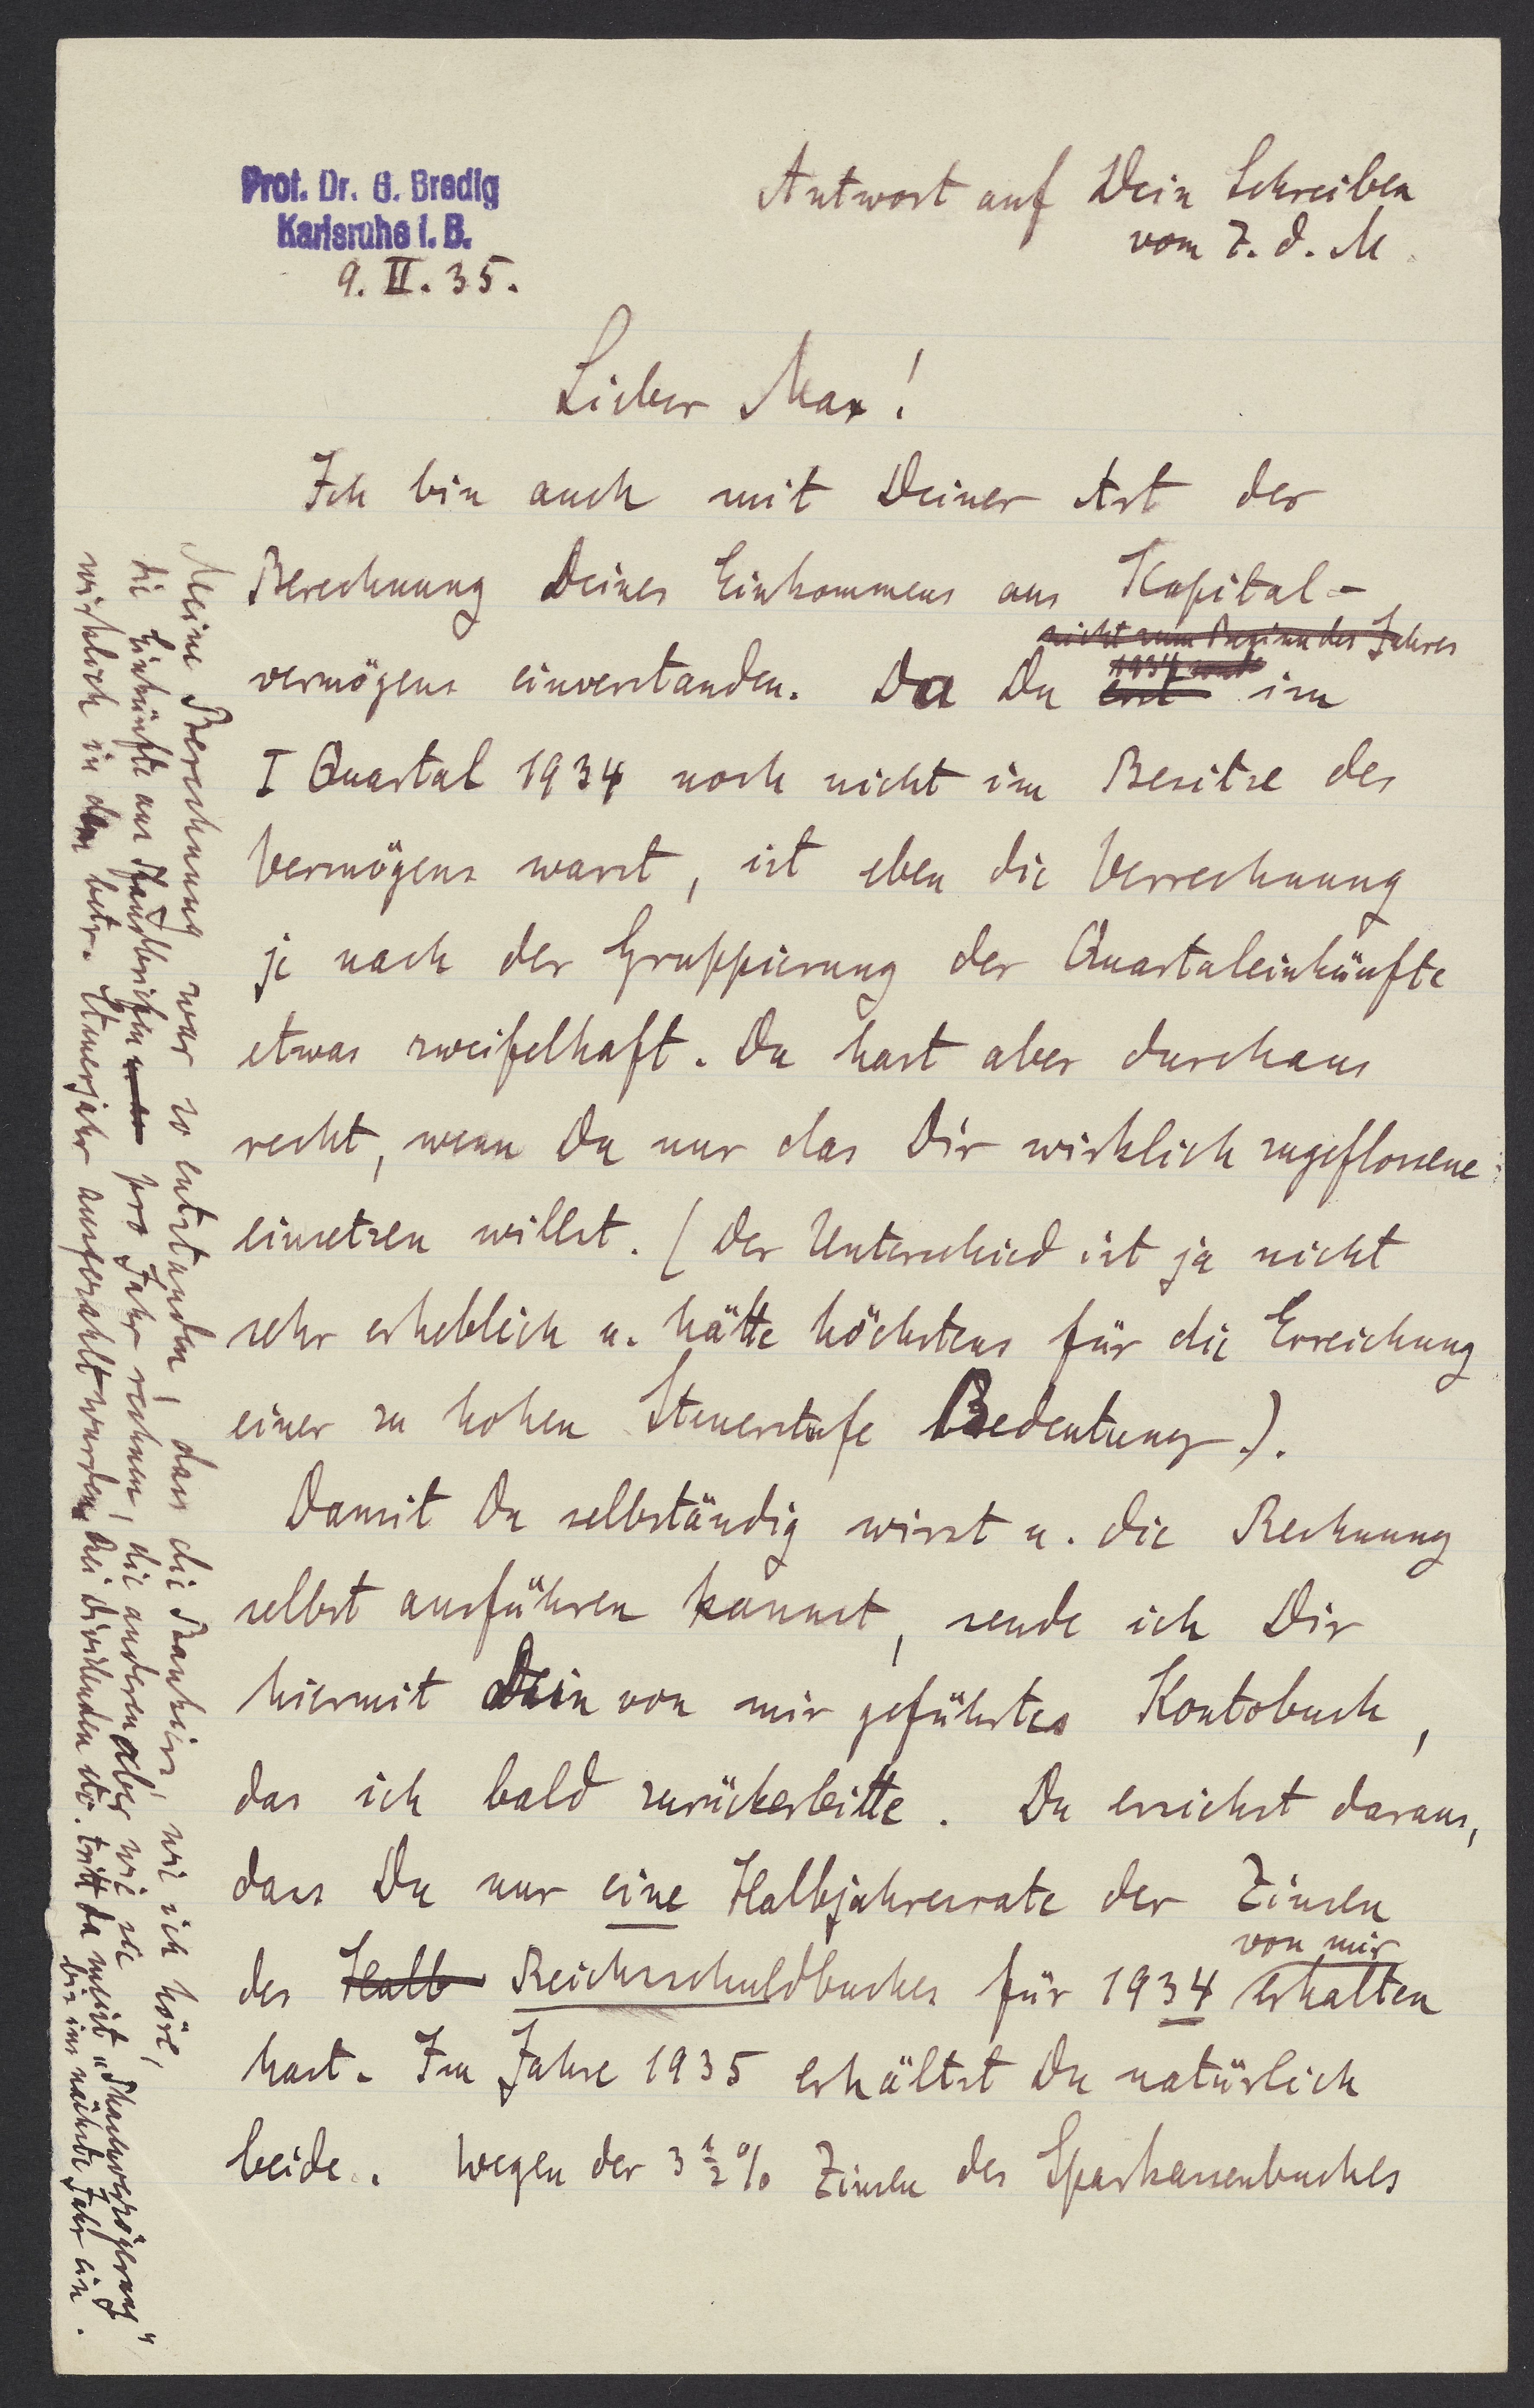 Prof. Dr. G. Bredig
Karlsruhe i. B.
9. II. 35.
Antwort auf Dein Schreiben
vom 7. d. M.
Lieber Max!
Ich bin auch mit Deiner Art der
Berechnung Deines Einkommens aus Kapital-
nicht zum Beginn des Jahres
1934
vermögens einverstanden. Da Du erst im
I Quartal 1934 noch nicht im Besitze des
Vermögens warst, ist eben die Verrechnung
je nach der Gruppierung der Quartaleinkünfte
etwas zweifelhaft. Du hast aber durchaus
recht, wenn Du nur das Dir wirklich zugeflossene
einsetzen willst. (Der Unterschied ist ja nicht
sehr erheblich u. hätte höchstens für die Erreichung
einer zu hohen Steuerstufe Bedeutung.).
Damit Du selbständig wirst u. die Rechnung
selbst ausführen kannst, sende ich Dir
hiermit Dein von mir geführtes Kontobuch,
das ich bald zurückerbitte. Du ersiehst daraus,
dass Du nur eine Halbjahresrate der Zinsen
von mir
des Halb Reichsschuldbuches für 1934 erhalten
hast. Im Jahre 1935 erhältst Du natürlich
beide. Wegen der 3 1/2 % Zinsen des Sparkassenbuches
Meine Berechnung war so entstanden, dass die Bankiers, wie ich höre,
die Einkünfte aus Pfandbriefen pro Jahr rechnen, die anderen aber wie sie
wirklich in dem betr. Steuerjahr ausgezahlt wurden. Bei Dividenden etc. tritt da meist "Phasenverzögerung"
bis ins nächste Jahr ein.